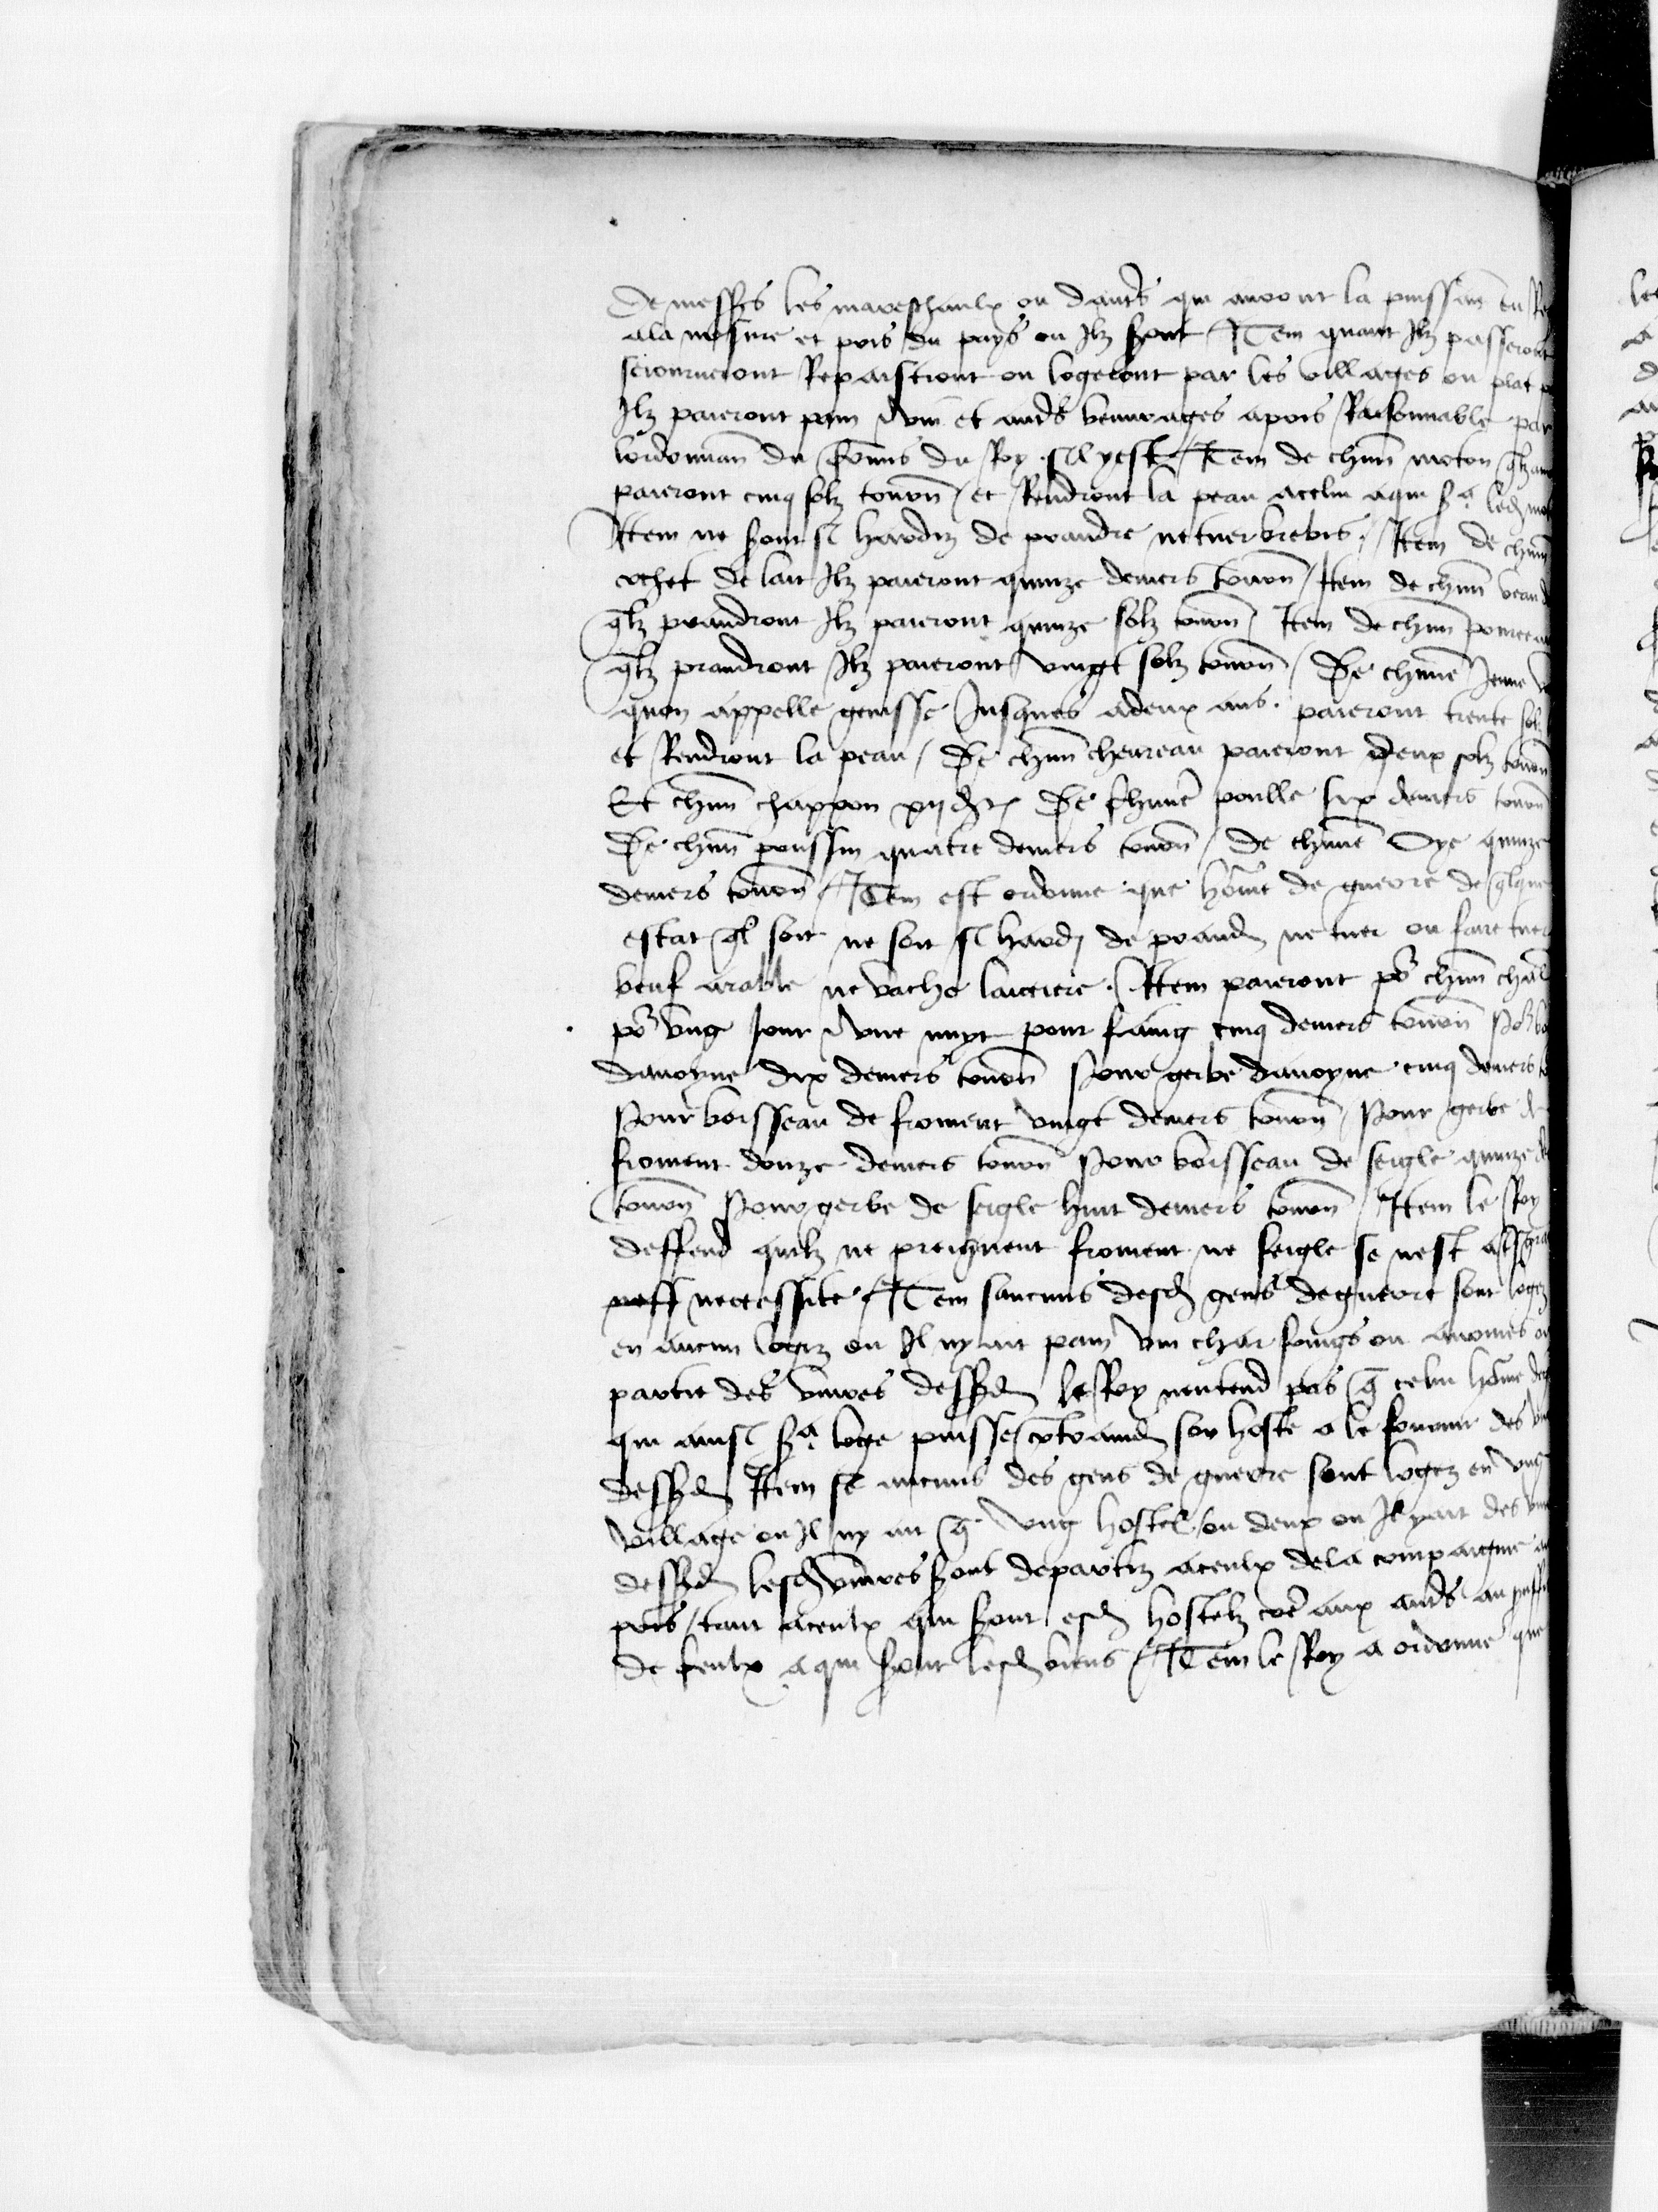 de messrs les mareschaulx ou dautrs qui auront la puissance en
a la mesure et pois du pays ou Ilz seront Item quant Ilz passeront
seiourneront Repaistront ou logeront par les villages ou plat
Ilz paieront pain vin et autrs beuurages a pois Raisonnable par
lordonnan du comis du Roy sil yest Item de chun moton qlz
paieront cinq solz tourn et Rendront la peau a celui a qui sera led
Item ne sont si hardiz de prandre ne tuer brebis Item de chun
de lait Ilz paieront quinze deniers tourn Item de chun
qlz prandront Ilz paieront quinze solz tourn Item de chun
qlz prandront Ilz paieront vingt solz tourn De chune Jeune
quon appelle genisse Jusques a deux ans paieront trente
et Rendront la peau De chun cheureau paieront deux solz tourn
Et chun chappon xij d t De chune poulle six deniers tourn
De chun poussin quatre deniers tourn de chune Oye quinze
deniers tourn Item est ordonne que home de guerre de qlque
estat ql soit ne soit si hardi de prandr ne tuer ou faire tuer
beuf arable ne vache laictiere Item paieront pour chun
pour vng Jour et vne nuyt pour faing cinq deniers tourn
dauoyne dix deniers tourn Pour gerbe dauoyne cinq deniers
Pour boisseau de froment vingt deniers tourn Pour gerbe de
froment douze deniers tourn Pour boisseau de seigle quinze
tourn Pour gerbe de seigle huit deniers tourn Item le Roy
deffend quilz ne preignent froment ne seigle se nest
necessite Item saucuns desd gens de guerre sont logez
en aucun logiz ou Il ny ait pain vin char foings ou auoines ou
partie des viures dessusd le Roy nentend pas q celui home
qui ainsi sera loge puisse contraindr son hoste a le fournir des
dessusd Item se aucuns des gens de guerre sont logez en vng
village ou Il ny ait q vng hostel ou deux ou Il yait des
dessusd lesd viures seront departiz a ceulx de la compaignie
pris tant a ceulx qui seront esd hostelz come aux autrs
de ceulx a qui seront lesd biens Item le Roy a ordonne que